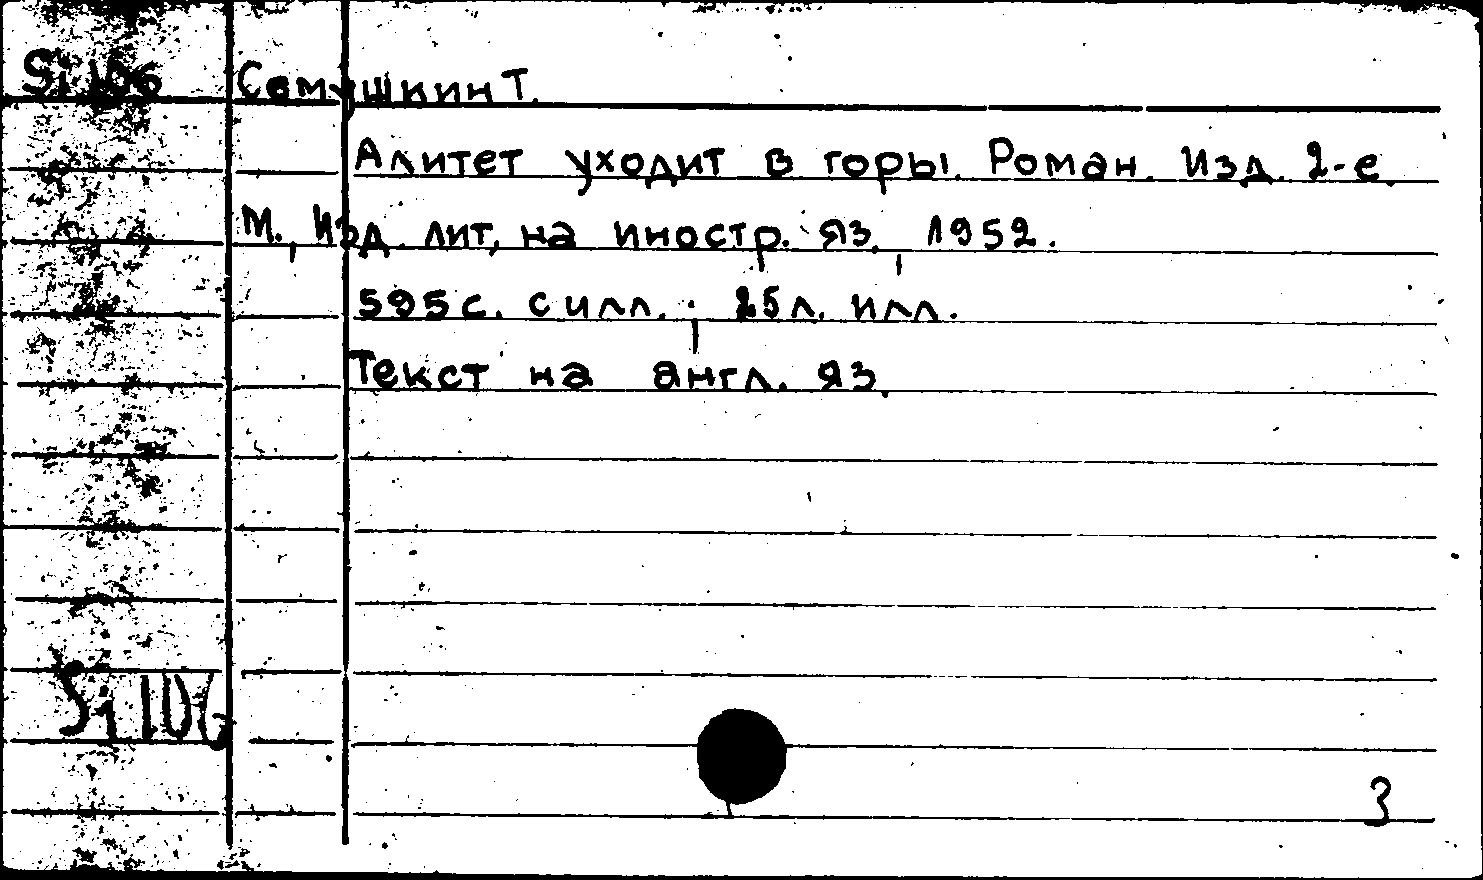 Si 106 Семушкин Т.
Алитет уходит в горы. Роман. Изд. 2-е.
М., Изд. лит, на иностр. яз., 1952.
595 с. с илл.; 25 л. илл.
Текст на англ. яз.
Si 106
3